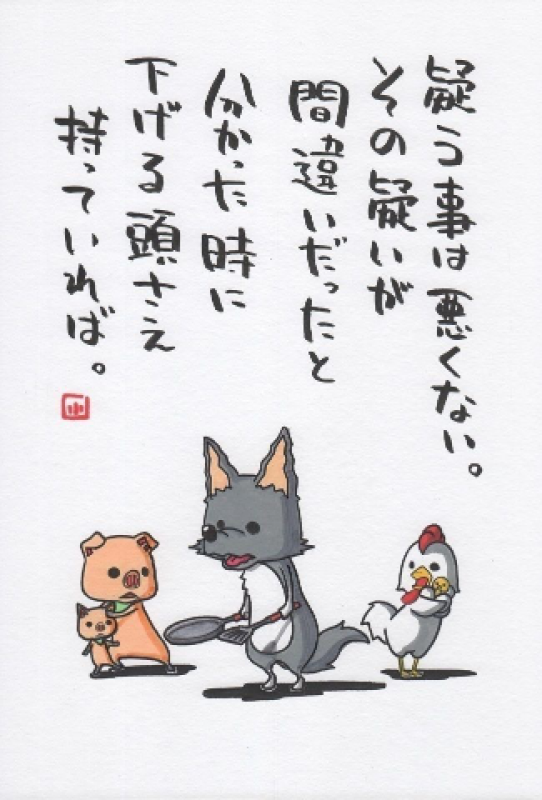 疑う事は悪くない。
その疑いが
間違いだったと
分かった時に
下げる頭さえ
持っていれば。